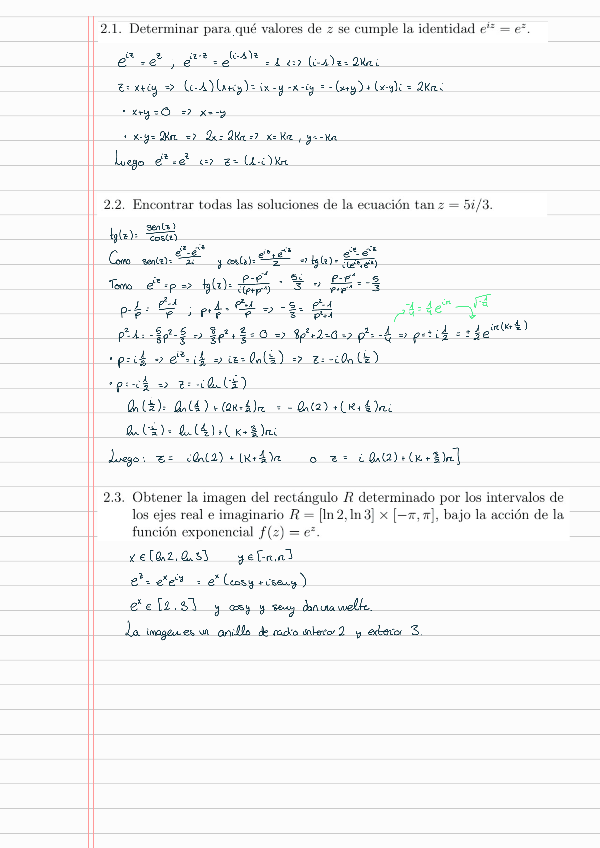 2.1. Determinar para qué valores de z se cumple la identidad e^{iz} = e^z.
e^{iz} = e^z , e^{iz-z} = e^{(i-1)z} = 1 <=> (i-1)z = 2Kπi
z = x+iy => (i-1)(x+iy) = ix-y-x-iy = -(x+y)+(x-y)i = 2Kπi
· x+y = 0 => x = -y
· x-y = 2Kπ => 2x = 2Kπ => x = Kπ , y = -Kπ
Luego e^{iz} = e^z <=> z = (1-i)Kπ
2.2. Encontrar todas las soluciones de la ecuación tan z = 5i/3.
tg(z) = sen(z)/cos(z)
Como sen(z) = (e^{iz}-e^{-iz})/2i y cos(z) = (e^{iz}+e^{-iz})/2 => tg(z) = (e^{iz}-e^{-iz})/(i(e^{iz}+e^{-iz}))
Tomo e^{iz} = p => tg(z) = (p-p^{-1})/(i(p+p^{-1})) = 5i/3 => (p-p^{-1})/(p+p^{-1}) = -5/3
p-1/p = (p²-1)/p ; p+1/p = (p²+1)/p => -5/3 = (p²-1)/(p²+1)
-1/4 = 1/4 e^{iπ} √(-1/4)
p²-1 = -5/3p²-5/3 => 8/3p²+2/3 = 0 => 8p²+2=0 => p² = -1/4 => p = ± i 1/2 = ± 1/2 e^{iπ(K+1/2)}
· p = i 1/2 => e^{iz} = i 1/2 => iz = ln(i/2) => z = -i ln(i/2)
· p = -i 1/2 => z = -i ln(-i/2)
ln(i/2) = ln(1/2) + (2K+1/2)π = -ln(2) + (K+1/2)πi
ln(-i/2) = ln(1/2) + (K+3/2)πi
Luego: z = i ln(2) + (K+1/2)π o z = i ln(2) + (K+3/2)π]
2.3. Obtener la imagen del rectángulo R determinado por los intervalos de
los ejes real e imaginario R = [ln 2, ln 3] × [−π, π], bajo la acción de la
función exponencial f(z) = e^z.
x ∈ [ln 2, ln 3] y ∈ [-π, π]
e^z = e^x e^{iy} = e^x (cos y + i sen y)
e^x ∈ [2, 3] y cos y y sen y dan una vuelta.
La imagen es un anillo de radio interior 2 y exterior 3.